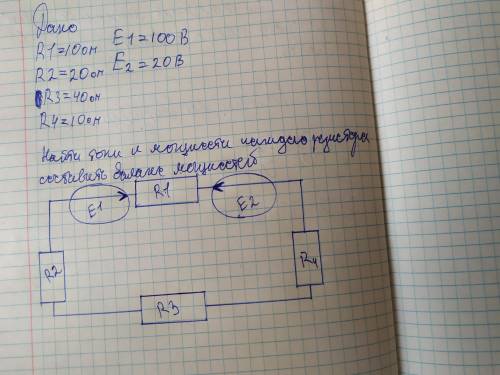 Дано
R1=10ом E1=100В
R2=20ом E2=20В
R3=40ом
R4=10ом
Найти токи и мощности каждого резистора
составить баланс мощностей
E1 R1 E2
R2 R4
R3